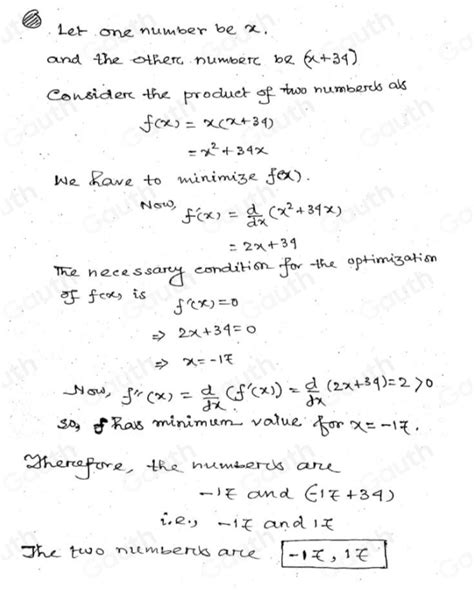 Let one number be x.
and the other number be (x+34)
Consider the product of two numbers as
f(x) = x(x+34)
= x² + 34x
We have to minimize f(x).
Now, f'(x) = d/dx (x² + 34x)
= 2x + 34
The necessary condition for the optimization
of f(x) is f'(x) = 0
⇒ 2x + 34 = 0
⇒ x = -17
Now, f''(x) = d/dx (f'(x)) = d/dx (2x+34) = 2 > 0
so, f has minimum value for x = -17.
Therefore, the numbers are
-17 and (-17+34)
i.e., -17 and 17
The two numbers are -17, 17